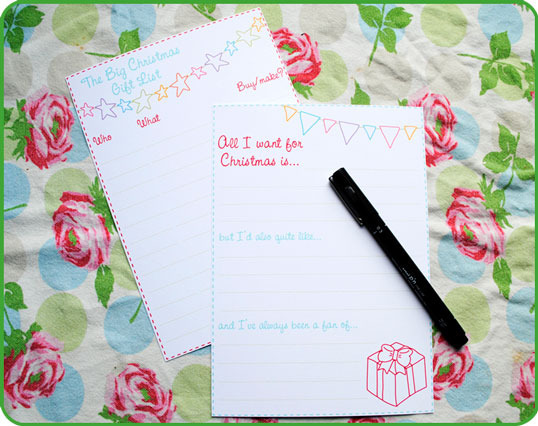 The Big Christmas
Gift List
Buy/make?
Who
What
All I want for
Christmas is...
but I'd also quite like...
and I've always been a fan of...